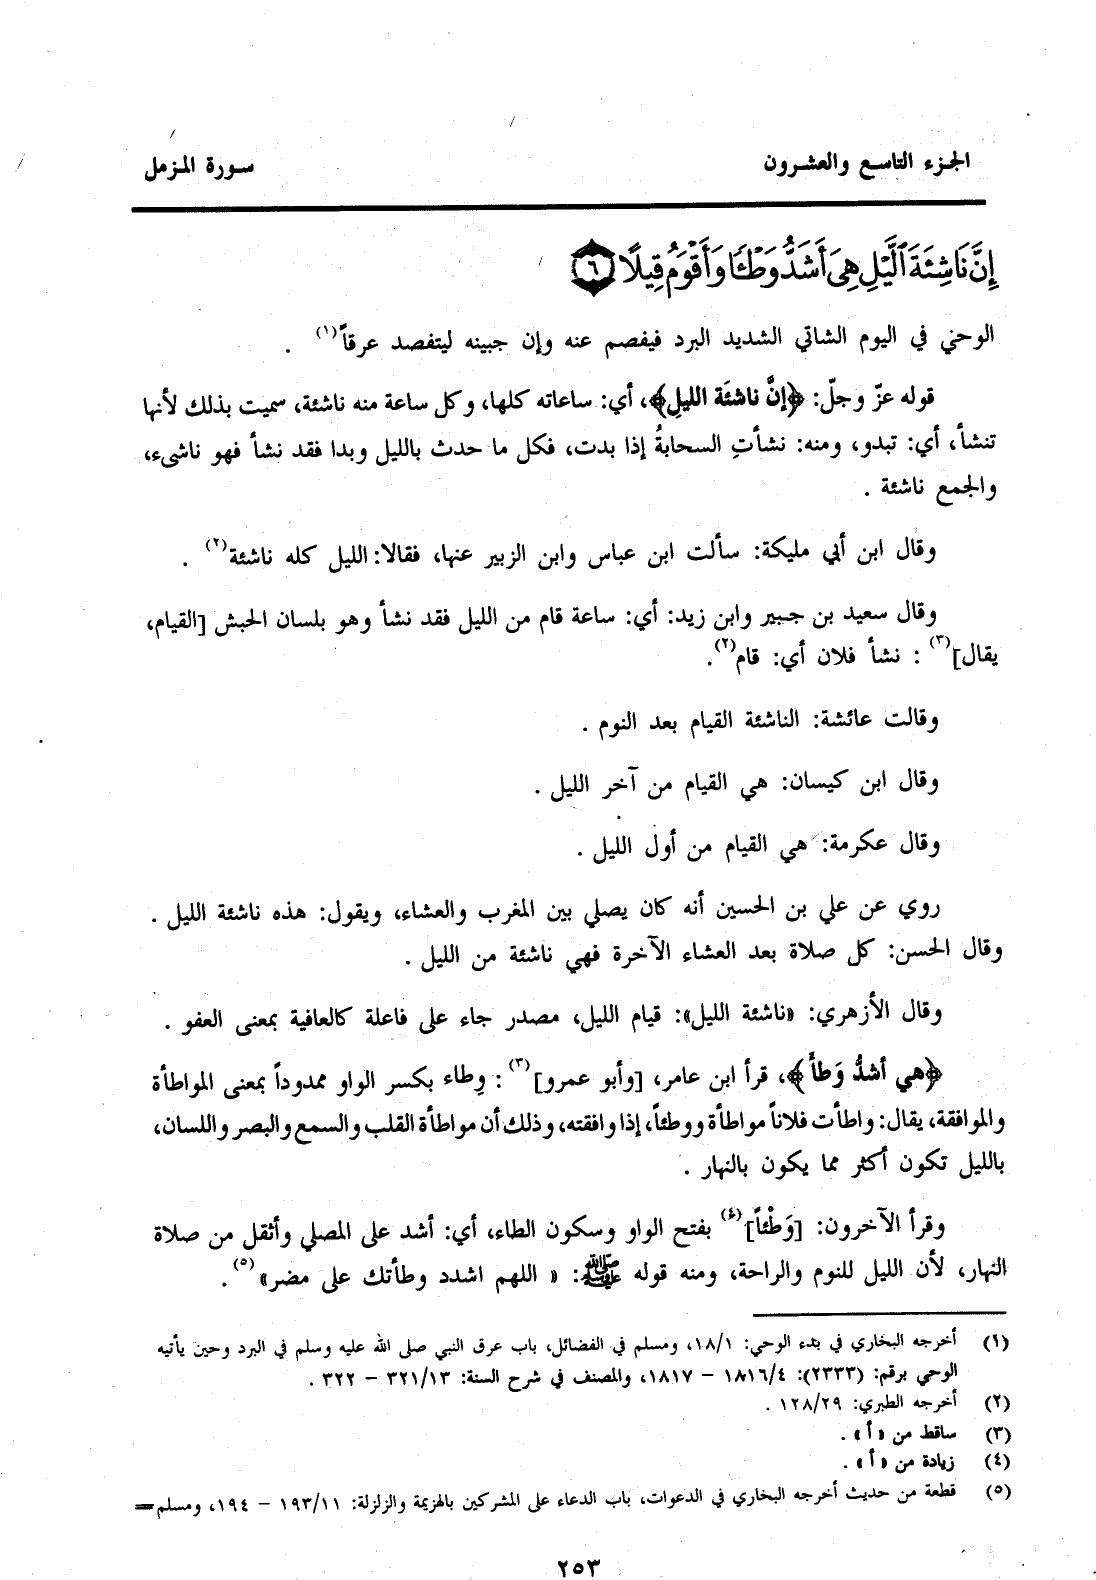 الجزء التاسع والعشرون سورة المزمل
إِنَّ نَاشِئَةَ ٱلَّيْلِ هِىَ أَشَدُّ وَطْـًٔا وَأَقْوَمُ قِيلًا ٦
الوحني في اليوم الشاتي الشديد البرد فيفصم عنه وإن جبينه ليتفصد عرقاً(١) .
قوله عزّ وجلّ: ﴿إنَّ ناشئَة الليلِ﴾، أي: ساعاته كلها، وكل ساعة منه ناشئة، سميت بذلك لأنها
تنشأ، أي: تبدو، ومنه: نشأتِ السحابةُ إذا بدت، فكل ما حدث بالليل وبدا فقد نشأ فهو ناشىء،
والجمع ناشئة .
وقال ابن أبي مليكة: سألت ابن عباس وابن الزبير عنها، فقالا: الليل كله ناشئة(٢) .
وقال سعيد بن جبير وابن زيد: أي: ساعة قام من الليل فقد نشأ وهو بلسان الحبش [القيام،
يقال](٣) : نشأ فلان أي: قام(٢).
وقالت عائشة: الناشئة القيام بعد النوم .
وقال ابن كيسان: هي القيام من آخر الليل .
وقال عكرمة: هي القيام من أول الليل .
روي عن علي بن الحسين أنه كان يصلي بين المغرب والعشاء، ويقول: هذه ناشئة الليل .
وقال الحسن: كل صلاة بعد العشاء الآخرة فهي ناشئة من الليل .
وقال الأزهري: «ناشئة الليل»: قيام الليل، مصدر جاء على فاعلة كالعافية بمعنى العفو .
﴿هي أشدُّ وَطأً﴾، قرأ ابن عامر، [وأبو عمرو](٣) : وِطاء بكسر الواو ممدوداً بمعنى المواطأة
والموافقة، يقال: واطأت فلاناً مواطأة ووطئاً، إذا وافقته، وذلك أن مواطأة القلب والسمع والبصر واللسان،
بالليل تكون أكثر مما يكون بالنهار .
وقرأ الآخرون: [وَطْئاً](٤) بفتح الواو وسكون الطاء، أي: أشد على المصلي وأثقل من صلاة
النهار، لأن الليل للنوم والراحة، ومنه قوله ﷺ: « اللهم اشدد وطأتك على مضر»(٥).
(١) أخرجه البخاري في بدء الوحي: ١٨/١، ومسلم في الفضائل، باب عرق النبي صلى الله عليه وسلم في البرد وحين يأتيه
الوحي برقم: (٢٣٣٣): ١٨١٦/٤ – ١٨١٧، والمصنف في شرح السنة: ٣٢١/١٣ – ٣٢٢ .
(٢) أخرجه الطبري: ١٢٨/٢٩ .
(٣) ساقط من «أ» .
(٤) زيادة من «أ» .
(٥) قطعة من حديث أخرجه البخاري في الدعوات، باب الدعاء على المشركين بالهزيمة والزلزلة: ١٩٣/١١ – ١٩٤، ومسلم=
٢٥٣